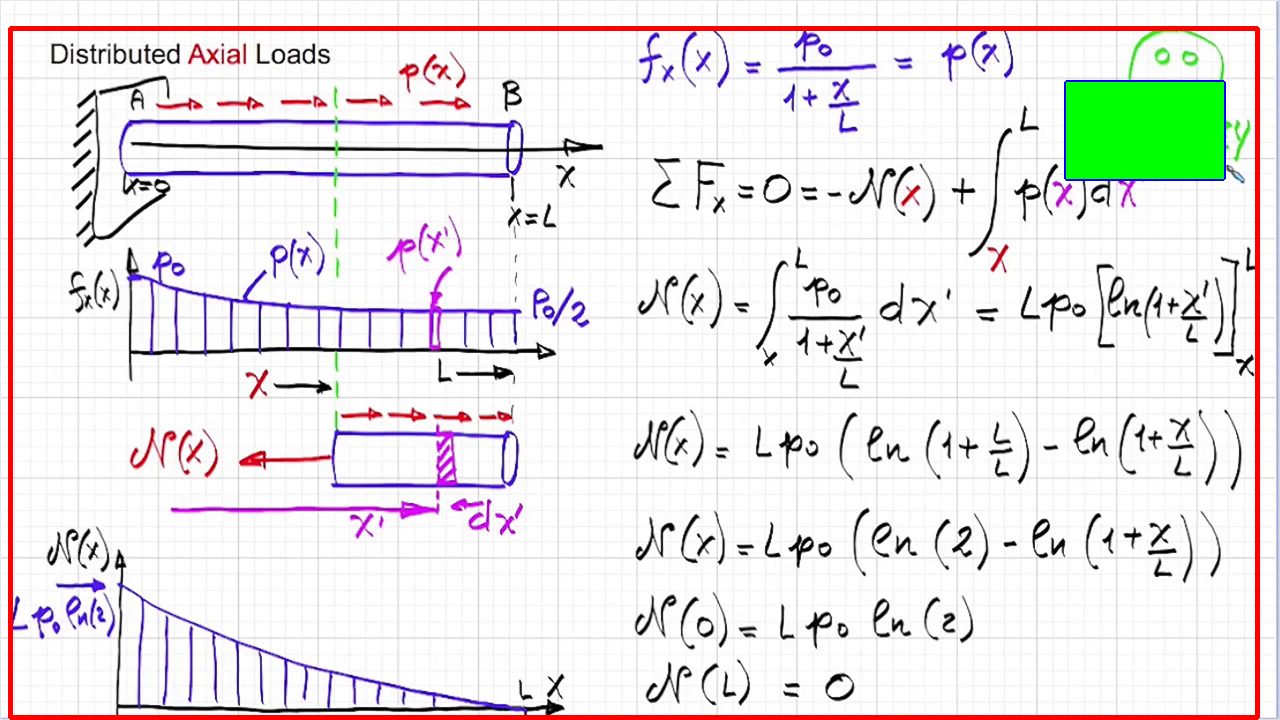 Distributed Axial Loads
p(x)
A
B
x=0
x
x=L
fx(x)
p0
p(x)
p(x')
p0/2
x
L
N(x)
x'
dx'
N(x)
L p0 ln(2)
L x
fx(x) = p0 / (1 + x/L) = p(x)
ΣFx = 0 = -N(x) + ∫_x^L p(x)dx
N(x) = ∫_x^L p0 / (1 + x'/L) dx' = L p0 [ln(1 + x'/L)]_x^L
N(x) = L p0 (ln(1 + L/L) - ln(1 + x/L))
N(x) = L p0 (ln(2) - ln(1 + x/L))
N(0) = L p0 ln(2)
N(L) = 0